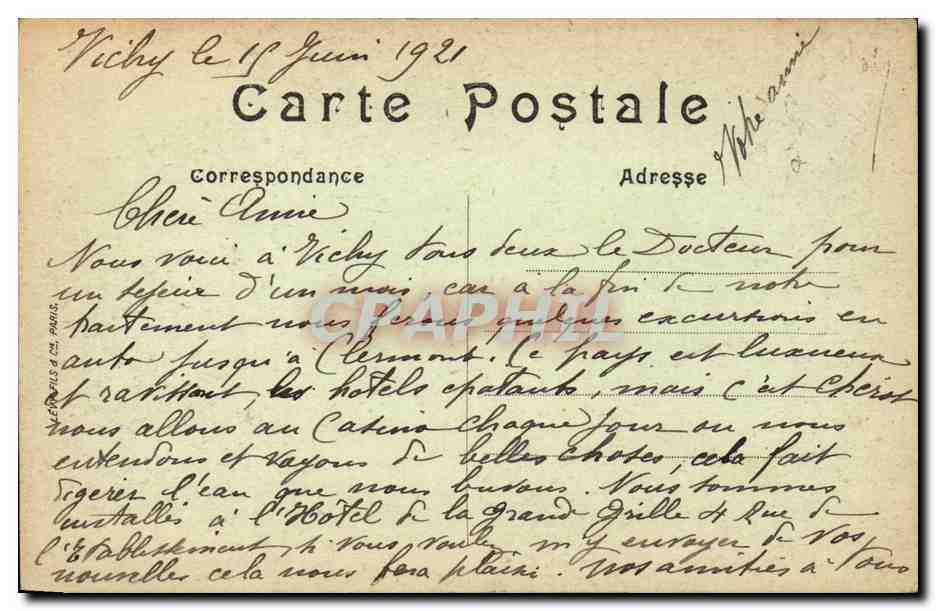 Vichy le 15 Juin 1921
Carte Postale
Votre amie
Correspondance
Adresse
Chère Amie
Nous voici à Vichy tous deux le Docteur pour
un sejour d'un mois, car à la fin de notre
traitement nous ferons quelques excursions en
auto jusqu'à Clermont. Ce pays est luxueux
et ravissant, les hotels epatants, mais c'est cherot
nous allons au Casino chaque jour ou nous
entendons et voyons de belles choses, cela fait
digerer l'eau que nous buvons. Nous sommes
installés à l'Hôtel de la Grande Grille 4 Rue de
l'Etablissement, si vous voulez m'y envoyer de vos
nouvelles cela nous fera plaisir. Nos amitiés à Tous
LÉVY FILS & Cie, PARIS.
CPAPHIL